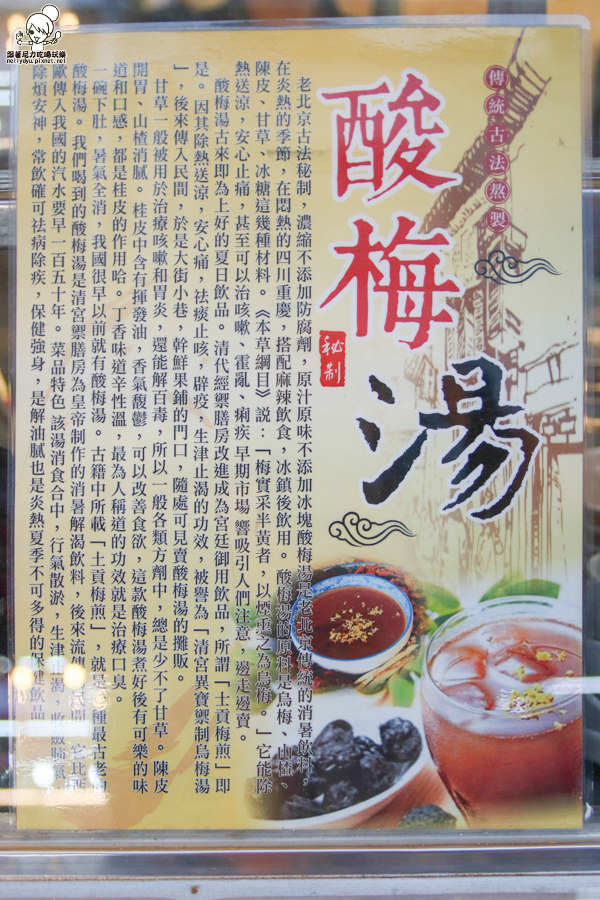 跟著尼力吃喝玩樂
nellydyu.pixnet.net
傳統古法熬製
酸梅湯
秘制
老北京古法秘制，濃縮不添加防腐劑，原汁原味不添加冰塊酸梅湯是老北京傳統的消暑飲料，
在炎熱的季節，在悶熱的四川重慶，搭配麻辣飲食，冰鎮後飲用。酸梅湯的原料是烏梅、山楂、
陳皮、甘草、冰糖這幾種材料。《本草綱目》説：「梅實采半黃者，以煙熏之為烏梅。」它能除
熱送涼，安心止痛，甚至可以治咳嗽、霍亂、痢疾 早期市場 響吸引人們注意，邊走邊賣。
酸梅湯古來即為上好的夏日飲品。清代經禦膳房改進成為宮廷御用飲品，所謂「土貢梅煎」即
是。因其除熱送涼，安心痛，祛痰止咳，辟疫，生津止渴的功效，被譽為「清宮異寶禦制烏梅湯
」，後來傳入民間，於是大街小巷，幹鮮果鋪的門口，隨處可見賣酸梅湯的攤販。
甘草一般被用於治療咳嗽和胃炎，還能解百毒，所以一般各類方劑中，總是少不了甘草。陳皮
開胃、山楂消膩。桂皮中含有揮發油，香氣馥鬱，可以改善食欲，這款酸梅湯煮好後有可樂的味
道和口感，都是桂皮的作用哈。丁香味道辛性溫，最為人稱道的功效就是治療口臭。
一碗下肚，暑氣全消，我國很早以前就有酸梅湯。古籍中所載「土貢梅煎」，就是 種最古老的
酸梅湯。我們喝到的酸梅湯是清宮禦膳房為皇帝制作的消暑解渴飲料，後來流傳 民間，它比西
歐傳入我國的汽水要早一百五十年。菜品特色 該湯消食合中，行氣散淤，生津止渴，收斂肺氣，
除煩安神，常飲確可祛病除疾，保健強身，是解油膩也是炎熱夏季不可多得的保健飲品